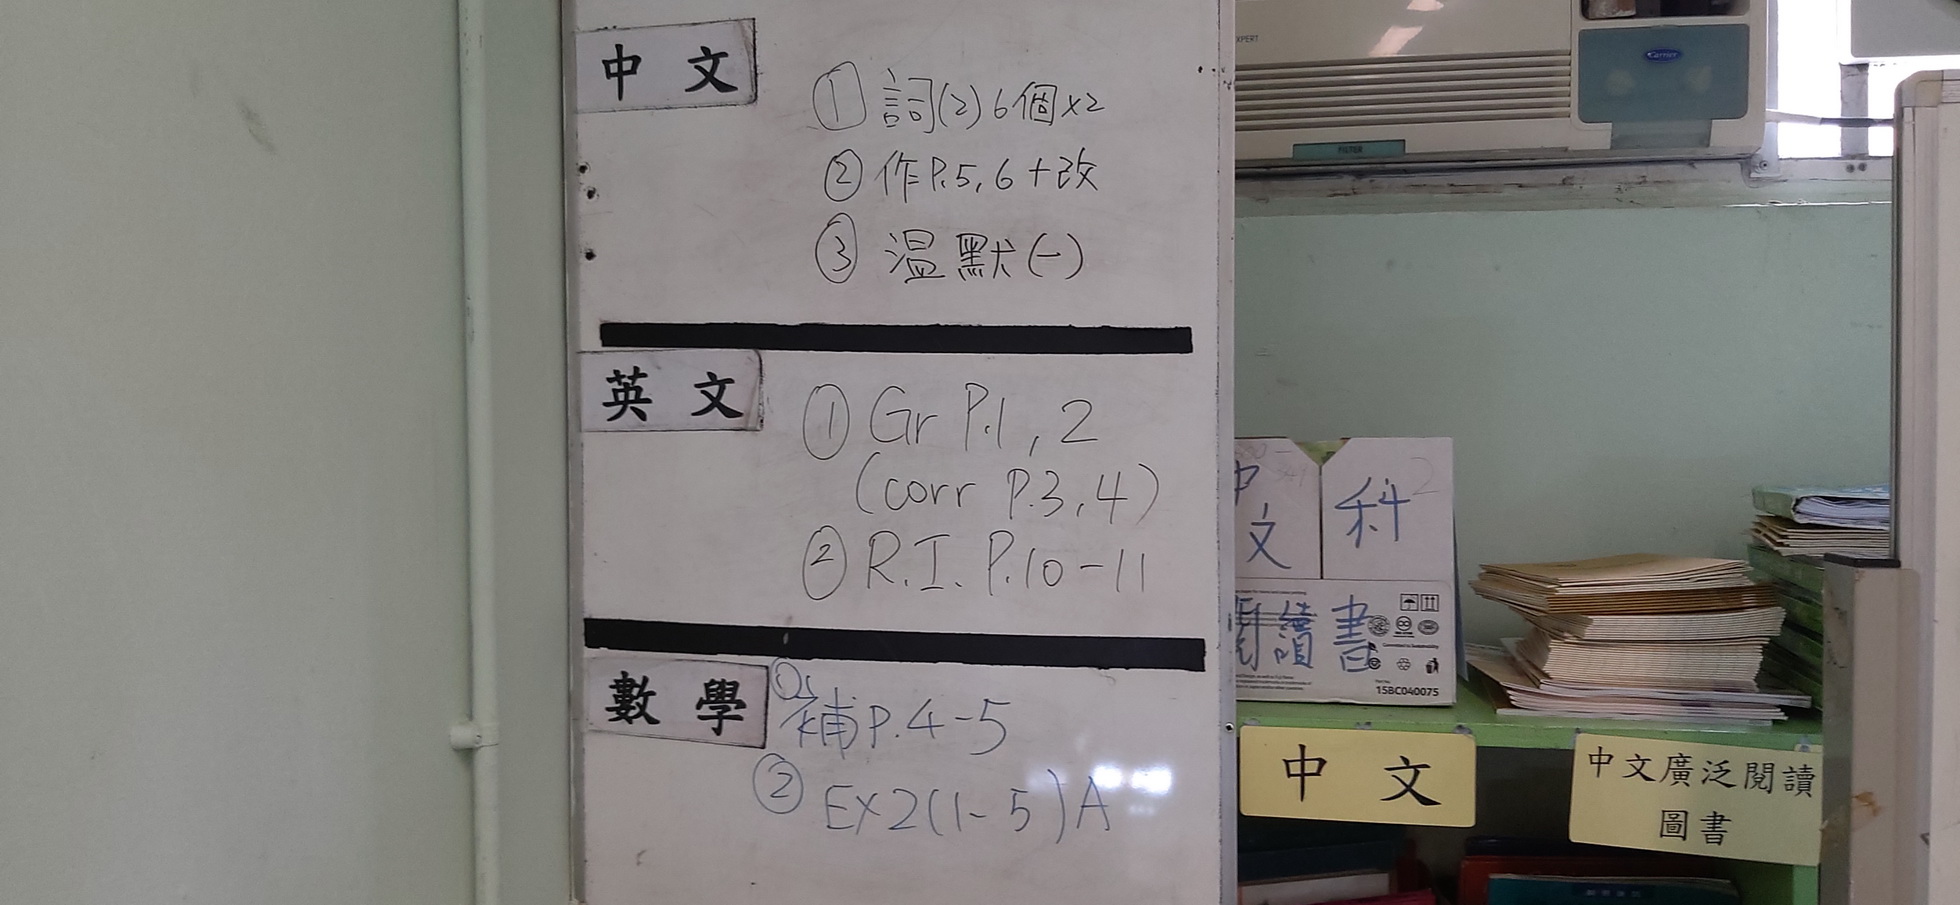 中文
① 詞(2) 6個x2
② 作P.5, 6 + 改
③ 溫默(一)
英文
① Gr P.1, 2
(corr P.3, 4)
② R.I. P.10-11
數學
① 補P.4-5
② Ex2(1-5)A
XPERT
Carrier
FILTER
中文
科
閱讀書
15BC040075
中文
中文廣泛閱讀
圖書